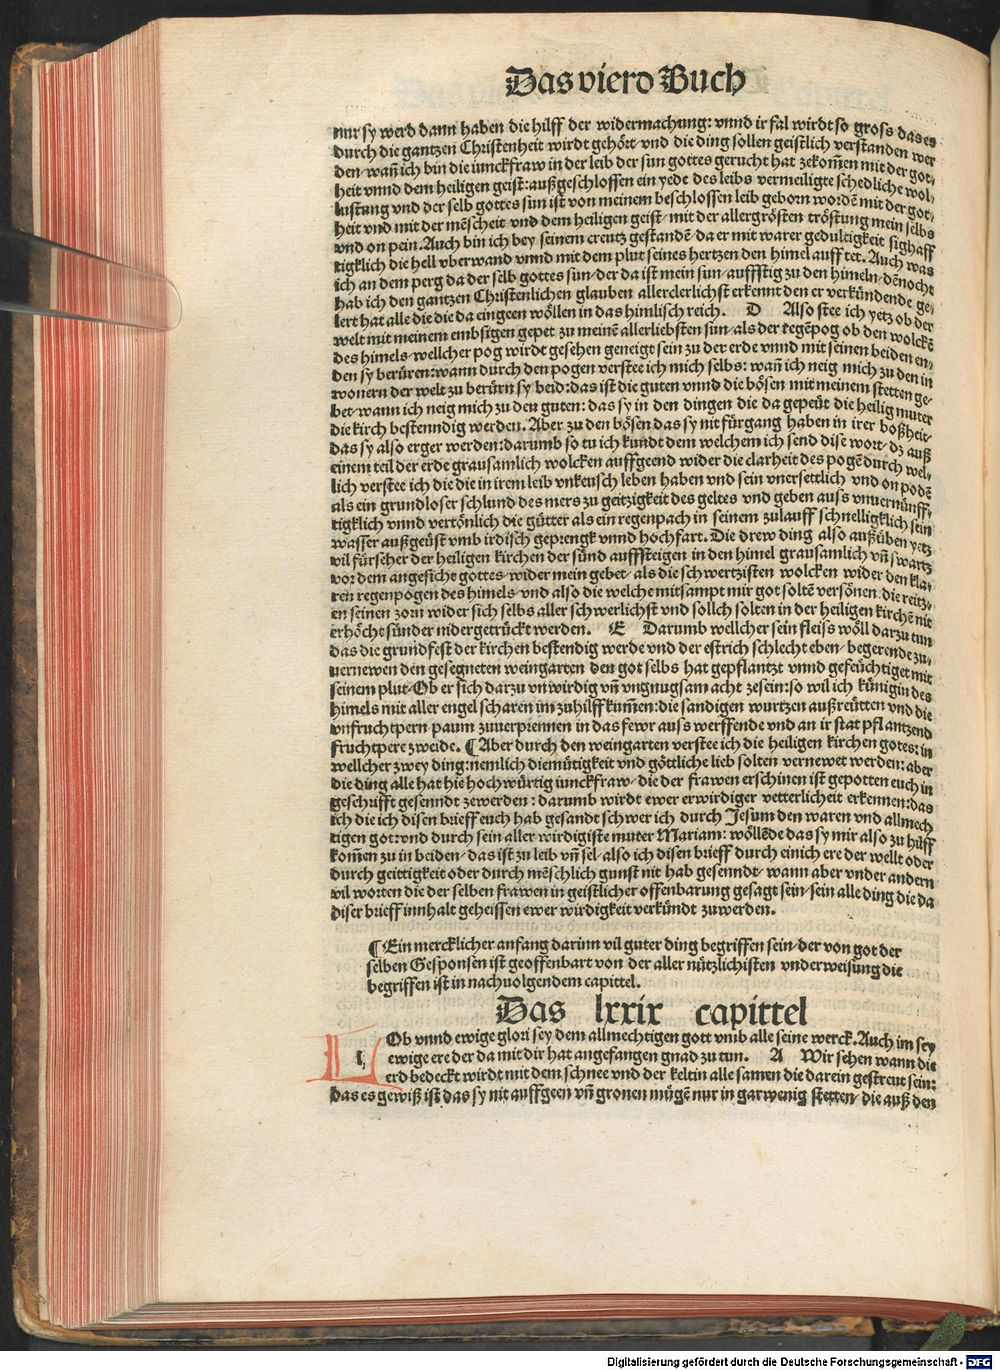 Das vierd Buch
nur sy werd dann haben die hilff der widermachung: vnnd ir fal wirdt so gross das es
durch die gantzen Christenheit wirdt gehört vnd die ding sollen geistlich verstanden wer
den/ wañ ich bin die iunckfraw in der leib der sun gottes gerucht hat zekom̄en mit der got/
heit vnnd dem heiligen geist: außgeschlossen ein yede des leibs vermeiligte schedliche wol/
lustung vnd der selb gottes sun ist von meinem beschlossen leib geborn wordē mit der got/
heit vnd mit der mēscheit vnd dem heiligen geist/ mit der allergrösten tröstung mein selbs
vnd on pein. Auch bin ich bey seinem creutz gestandē/ da er mit warer gedultigkeit sighaff
tigklich die hell vberwand vnnd mit dem plut seines hertzen den himel auff tet. Auch was
ich an dem perg da der selb gottes sun/ der da ist mein sun/ auffstig zu den himeln/ dēnocht
hab ich den gantzen Christenlichen glauben allerclerlichst erkennt den er verkündende ge/
lert hat alle die die da eingeen wöllen in das himlisch reich. D Also stee ich yetz ob der
welt mit meinem embsigen gepet zu meinē allerliebsten sun/ als der regēpog ob den wolckē
des himels/ wellcher pog wirdt gesehen geneigt sein zu der erde vnnd mit seinen beiden en/
den sy berüren: wann durch den pogen verstee ich mich selbs: wañ ich neig mich zu den in
wonern der welt zu berürn sy beid: das ist die guten vnnd die bösen mit meinem stetten ge/
bet/ wann ich neig mich zu den guten: das sy in den dingen die da gepeüt die heilig muter
die kirch bestenndig werden. Aber zu den bösen das sy nit fürgang haben in irer boßheit/
das sy also erger werden: darumb so tu ich kundt dem welchem ich send dise wort/ dz auß
einem teil der erde grausamlich wolcken auffgeend wider die clarheit des pogē durch wel/
lich verstee ich die die in irem leib vnkeusch leben haben vnd sein vnersettlich vnd on podē
als ein grundloser schlund des mers zu geitzigkeit des geltes vnd geben auss vnuernünff/
tigklich vnnd vertönlich die gütter als ein regenpach in seinem zulauff schnelligklich sein
wasser außgeüst vmb irdisch geprengk vnnd hochfart. Die drew ding also außüben yetz
vil fürseher der heiligen kirchen der sünd auffsteigen in den himel grausamlich vñ swartz
vor dem angesicht gottes/ wider mein gebet/ als die schwertzisten wolcken wider den kla/
ren regenpogen des himels/ vnd also die welche mitsampt mir got soltē versönen/ die reitz/
en seinen zorn wider sich selbs aller schwerlichst vnd sollch solten in der heiligen kirchē nit
erhöcht sünder nidergetrückt werden. E Darumb wellcher sein fleiss wöll darzu tun
das die grundfest der kirchen bestendig werde vnd der estrich schlecht eben/ begerende zu/
uernewen den gesegneten weingarten den got selbs hat gepflantzt vnnd gefeüchtiget mit
seinem plut/ Ob er sich darzu vnwirdig vñ vngnugsam acht zesein: so wil ich künigin des
himels mit aller engel scharen im zuhilff kum̄en: die sandigen wurtzen außreütten vnd die
vnfruchtpern paum zuuerprennen in das fewr auss werffende vnd an ir stat pflantzend
fruchtpere zweide. ¶ Aber durch den weingarten verstee ich die heiligen kirchen gotes: in
wellcher zwey ding: nemlich diemütigkeit vnd göttliche lieb solten vernewet werden: aber
die ding alle hat hie hochwürtig iunckfraw/ die der frawen erschinen ist gepotten euch in
geschrifft gesenndt zewerden: darumb wirdt ewer erwirdiger vetterlicheit erkennen: das
ich die ich disen brieff euch hab gesandt schwer ich durch Jesum den waren vnd allmech
tigen got: vnd durch sein aller wirdigiste muter Mariam: wöllēde das sy mir also zu hilff
kom̄en zu in beiden/ das ist zu leib vñ sel/ also ich disen brieff durch einich ere der wellt oder
durch geittigkeit oder durch mēschlich gunst nit hab gesenndt/ wann aber vnder andern
vil worten die der selben frawen in geistlicher offenbarung gesagt sein/ sein alle ding die da
diser brieff innhalt geheissen ewer wirdigkeit verkündt zuwerden.
¶ Ein mercklicher anfang darinn vil guter ding begriffen sein/ der von got der
selben Gesponsen ist geoffenbart von der aller nützlichisten vnderweisung die
begriffen ist in nachuolgendem capittel.
Das lxxix capittel
LOb vnnd ewige glori sey dem allmechtigen gott vmb alle seine werck. Auch im sey
ewige ere der da mit dir hat angefangen gnad zu tun. A Wir sehen wann die
erd bedeckt wirdt mit dem schnee vnd der keltin alle samen die darein gestreut sein:
das es gewiß ist das sy nit auffgeen vñ gronen mügē nur in gar wenig stetten/ die auß den
Digitalisierung gefördert durch die Deutsche Forschungsgemeinschaft - DFG